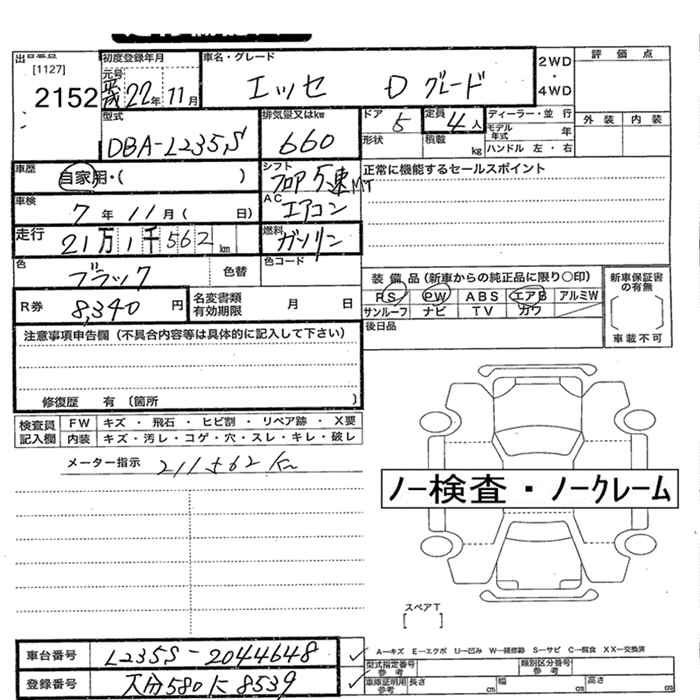 出
[1127]
2152
初度登録年月
元号
平22年11月
車名・グレード
エッセ Dグレード
2WD
・
4WD
評価点
外装 内装
型式
DBA-L235S
排気量又はkw
660
ドア 5
形状
定員 4人
積載 kg
ディーラー・並行
モデル年式 年
ハンドル 左・右
車歴
自家用・( )
シフト
フロア5速MT
正常に機能するセールスポイント
車検
7年11月( 日)
AC
エアコン
走行
21万1千562km
燃料
ガソリン
色
ブラック
色替
色コード
R券 8,340円
名変書類
有効期限 月 日
装備品(新車からの純正品に限り○印)
PS PW ABS エアB アルミW
サンルーフ ナビ TV カワ
後日品
新車保証書
の有無
車載不可
注意事項申告欄(不具合内容等は具体的に記入して下さい)
修復歴 有(箇所 )
検査員
記入欄
FW キズ・飛石・ヒビ割・リペア跡・X要
内装 キズ・汚レ・コゲ・穴・スレ・キレ・破レ
メーター指示 211562km
ノー検査・ノークレーム
スペアT
[ ]
車台番号 L235S-2044648
登録番号 大分580に8539
A−キズ E−エクボ U−凹み W−補修跡 S−サビ C−腐食 XX−交換済
型式指定番号
参考
類別区分番号
参考
車庫証明用
参考
長さ cm 幅 cm 高さ cm